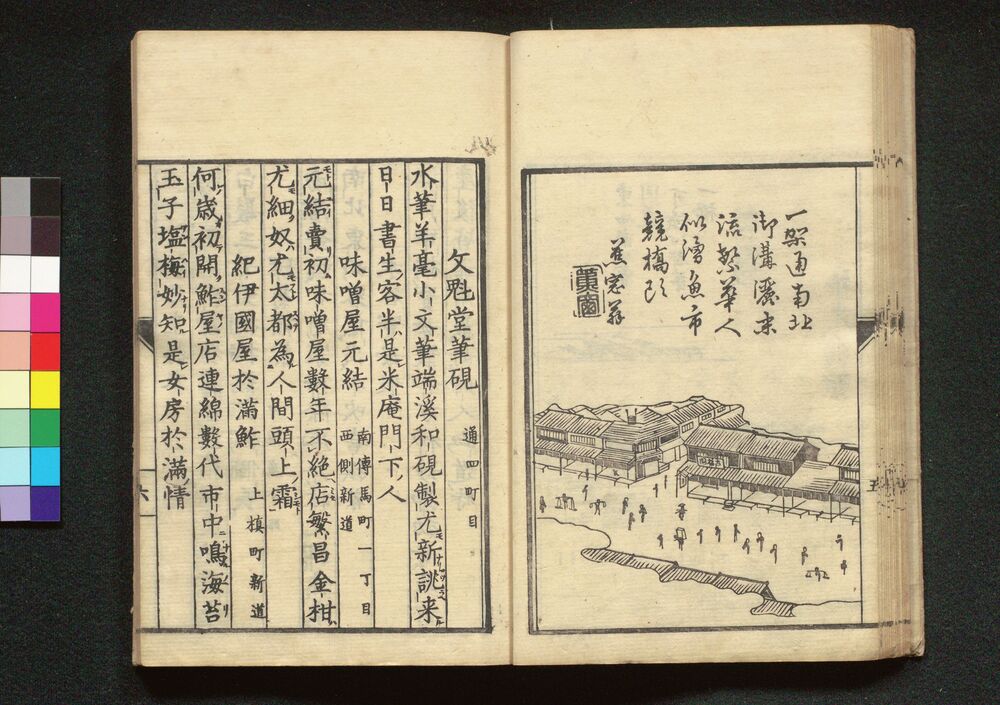 一架通南北
御溝漲末
流繁華人
似湧魚市
競橋頭
蕉窓
五
文魁堂筆硯 通四町目
水筆羊毫小文筆端溪和硯製尤新誂来
日日書生客半是米庵門下人
味噌屋元結 南傳馬町一丁目西側新道
元結賣初味噌屋數年不絶店繁昌金柑
尤細奴尤太都為人間頭上霜
紀伊國屋於滿鮓 上槙町新道
何歳初開鮓屋店連綿數代市中鳴海苔
玉子塩梅妙知是女房於滿情
六